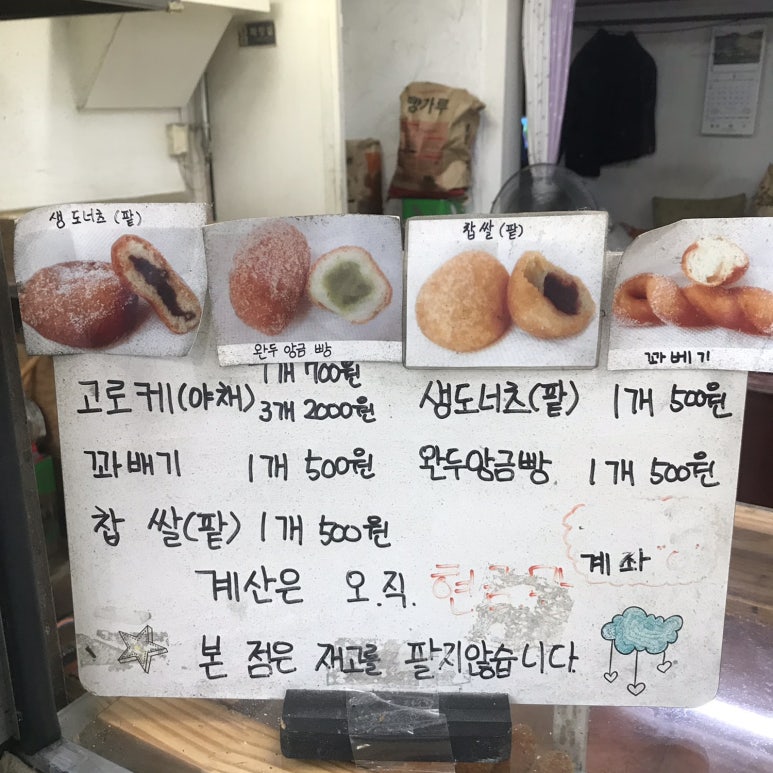 밀가루
생 도너츠 (팥)
완두 앙금 빵
찹쌀 (팥)
꽈베기
고로케(야채) 1개 700원
3개 2000원
생도너츠(팥) 1개 500원
꽈배기 1개 500원
완두앙금빵 1개 500원
찹 쌀(팥) 1개 500원
계산은 오.직. 현금
계좌
본 점은 재고를 팔지않습니다.